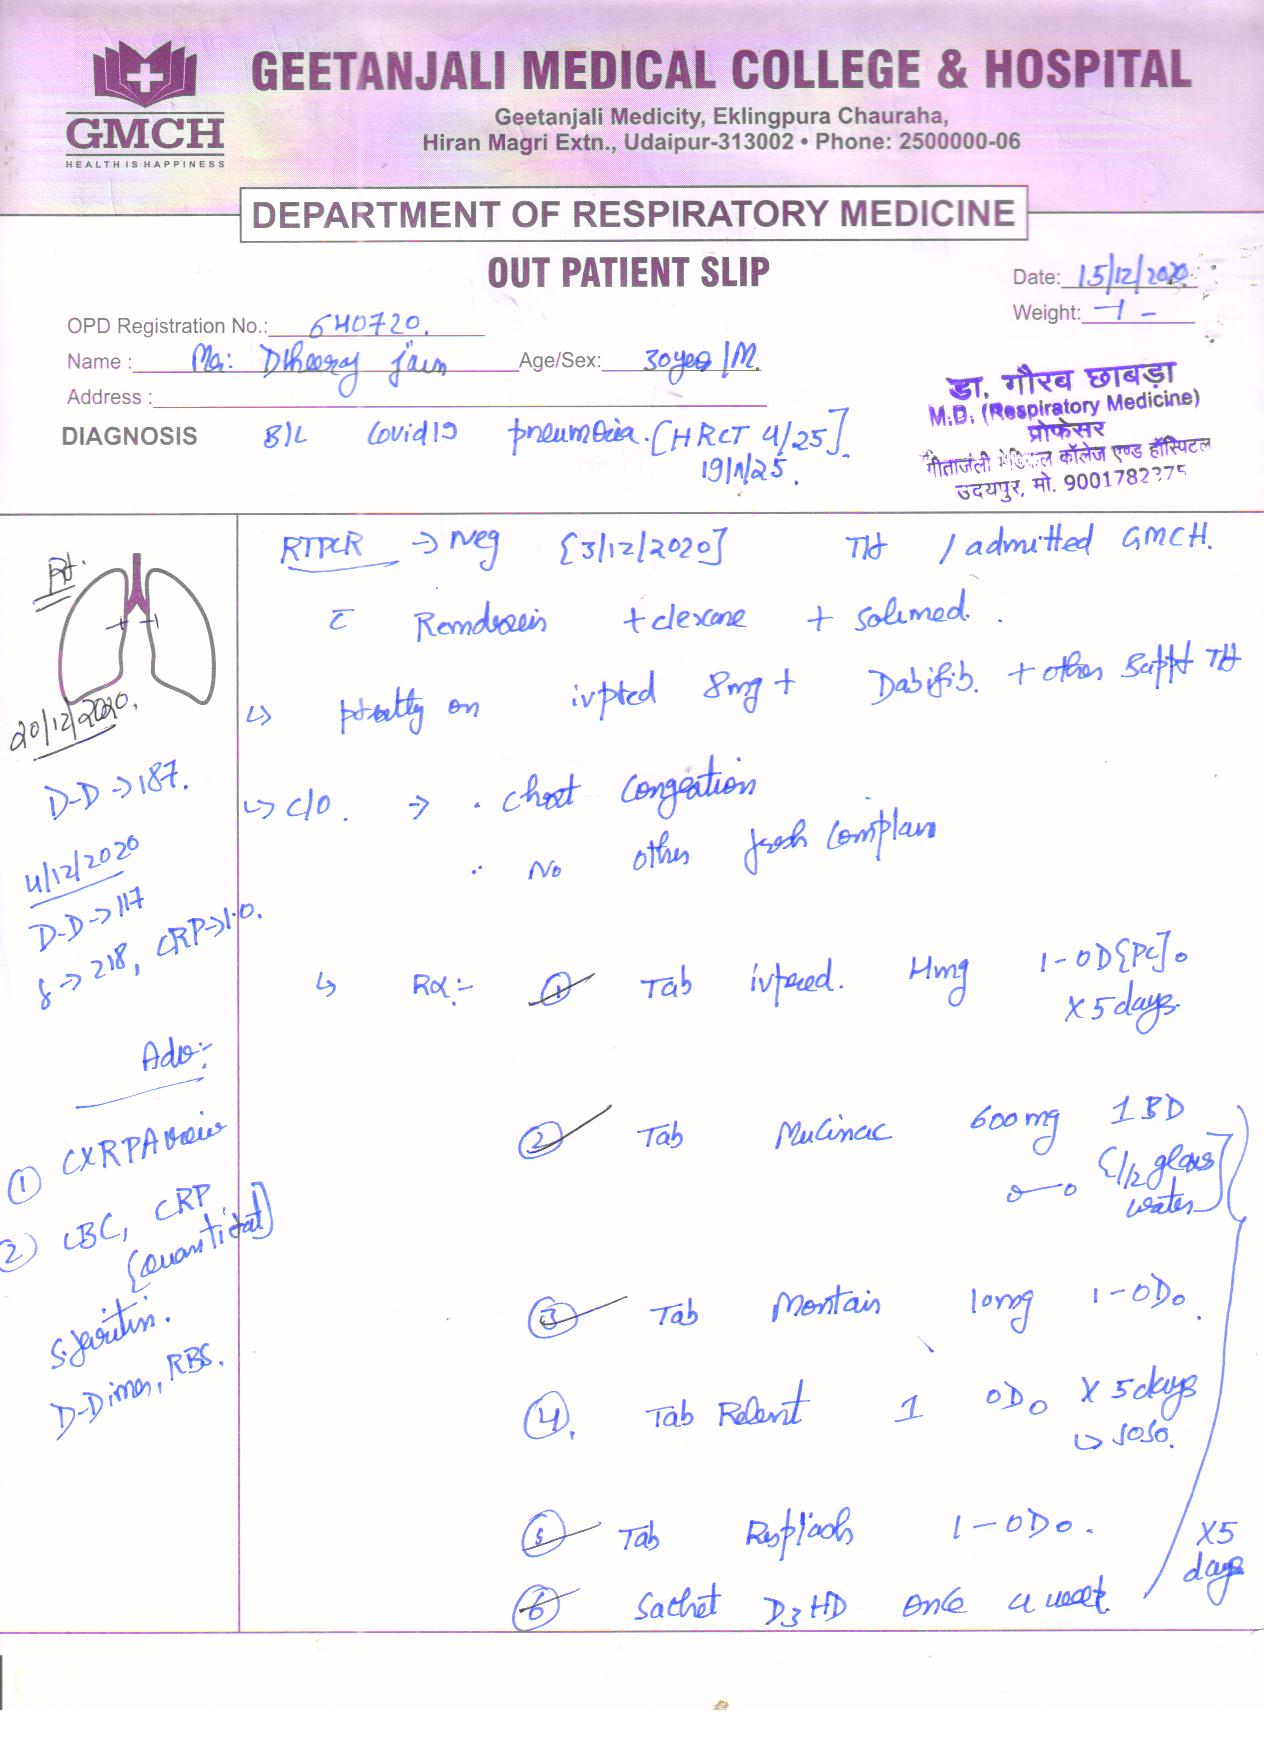 GEETANJALI MEDICAL COLLEGE & HOSPITAL
Geetanjali Medicity, Eklingpura Chauraha,
Hiran Magri Extn., Udaipur-313002 • Phone: 2500000-06
GMCH
HEALTH IS HAPPINESS
DEPARTMENT OF RESPIRATORY MEDICINE
OUT PATIENT SLIP
Date: 15/12/2020
Weight:
OPD Registration No.: 540720.
Name : Mr: Dheeraj Jain Age/Sex: 30 yrs/M.
Address :
DIAGNOSIS B/L Covid19 pneumonia. [HRCT 4/25].
19/11/25.
डा. गौरब छाबड़ा
M.D. (Respiratory Medicine)
प्रोफेसर
गीतांजली मेडिकल कॉलेज एण्ड हॉस्पिटल
उदयपुर, मो. 9001782375
RTPCR → Neg [3/12/2020] / admitted GMCH.
+ clexane + solumed.
on 8mg + Dabifib. + other
↳ C/O. → . Chest Congestion
. No other fresh Complain
↳ Rx:- 1 Tab 4mg 1-OD [PC].
X 5 days.
2 Tab Mucinac 600mg 1 BD
{1/2 glass
water}
3 Tab Montair 10mg 1-OD.
4. Tab Relent 1 OD X 5 days
↳ SOS.
5 Tab Resplash 1-OD.
6 Sachet D3 HD once a week.
X5
days
Rt.
20/12/2020.
D-D → 187.
4/12/2020
D-D → 117
f → 218, CRP → 1.0.
Adv:-
1 CXR PA view
2 CBC, CRP
[Quantitat]
S. feritin.
D-Dimer, RBS.